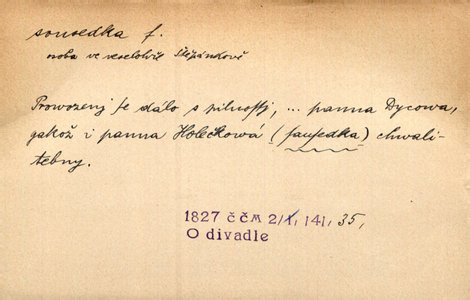 sousedka f.
osoba ve veselohře Štěpánkově
Prowozenj se dálo s pilnostj, ... panna Dycowa,
gakož i panna Holečkowá (sausedka) chwali-
tebny.
1827 ČČM 2/1, 141, 35,
O divadle